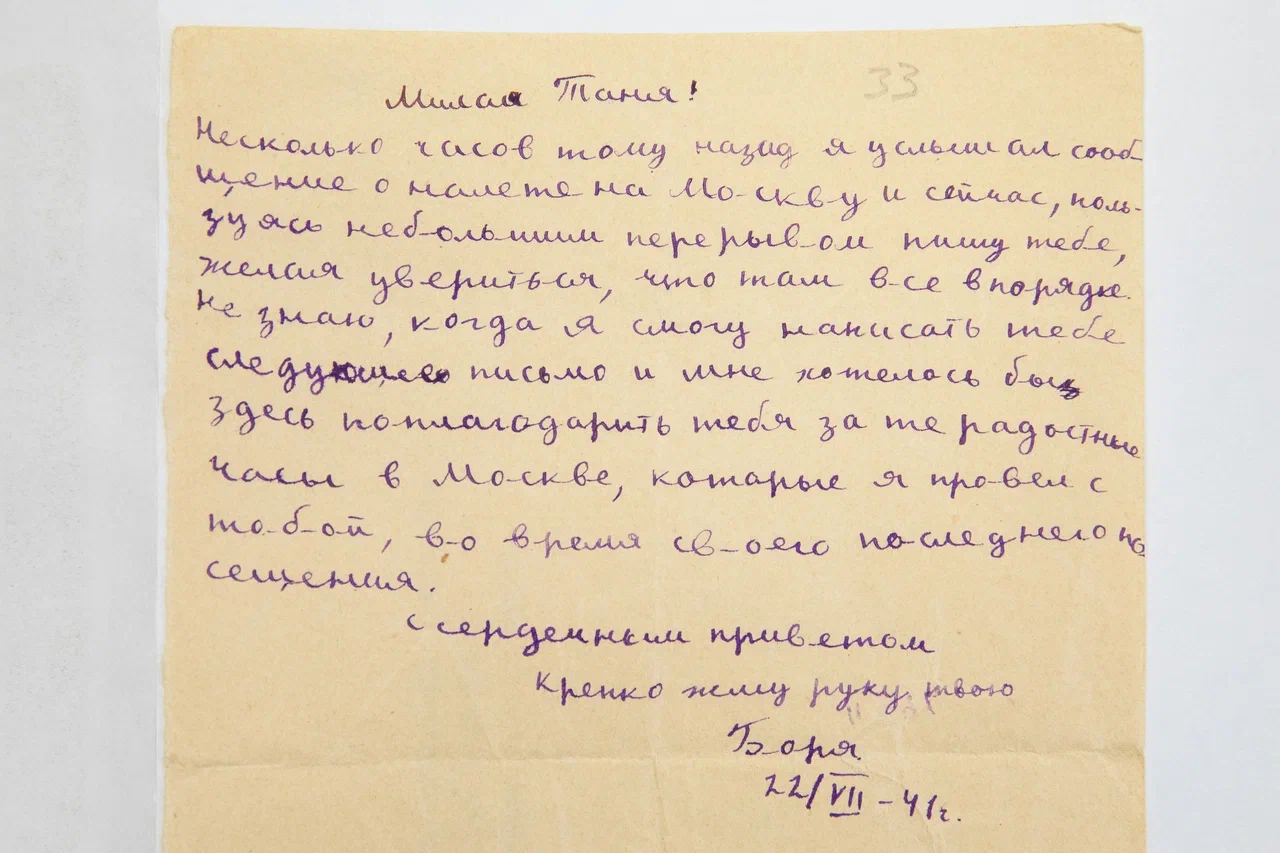 33
Милая Таня!
Несколько часов тому назад я услышал сооб-
щение о налете на Москву и сейчас, поль-
зуясь небольшим перерывом пишу тебе,
желая увериться, что там все в порядке.
Не знаю, когда я смогу написать тебе
следующее письмо и мне хотелось бы
здесь поплагодарить тебя за те радостные
часы в Москве, которые я провел с
тобой, во время своего последнего по
сещения.
С сердечным приветом
Крепко жму руку твою
Боря
22/VII – 41г.